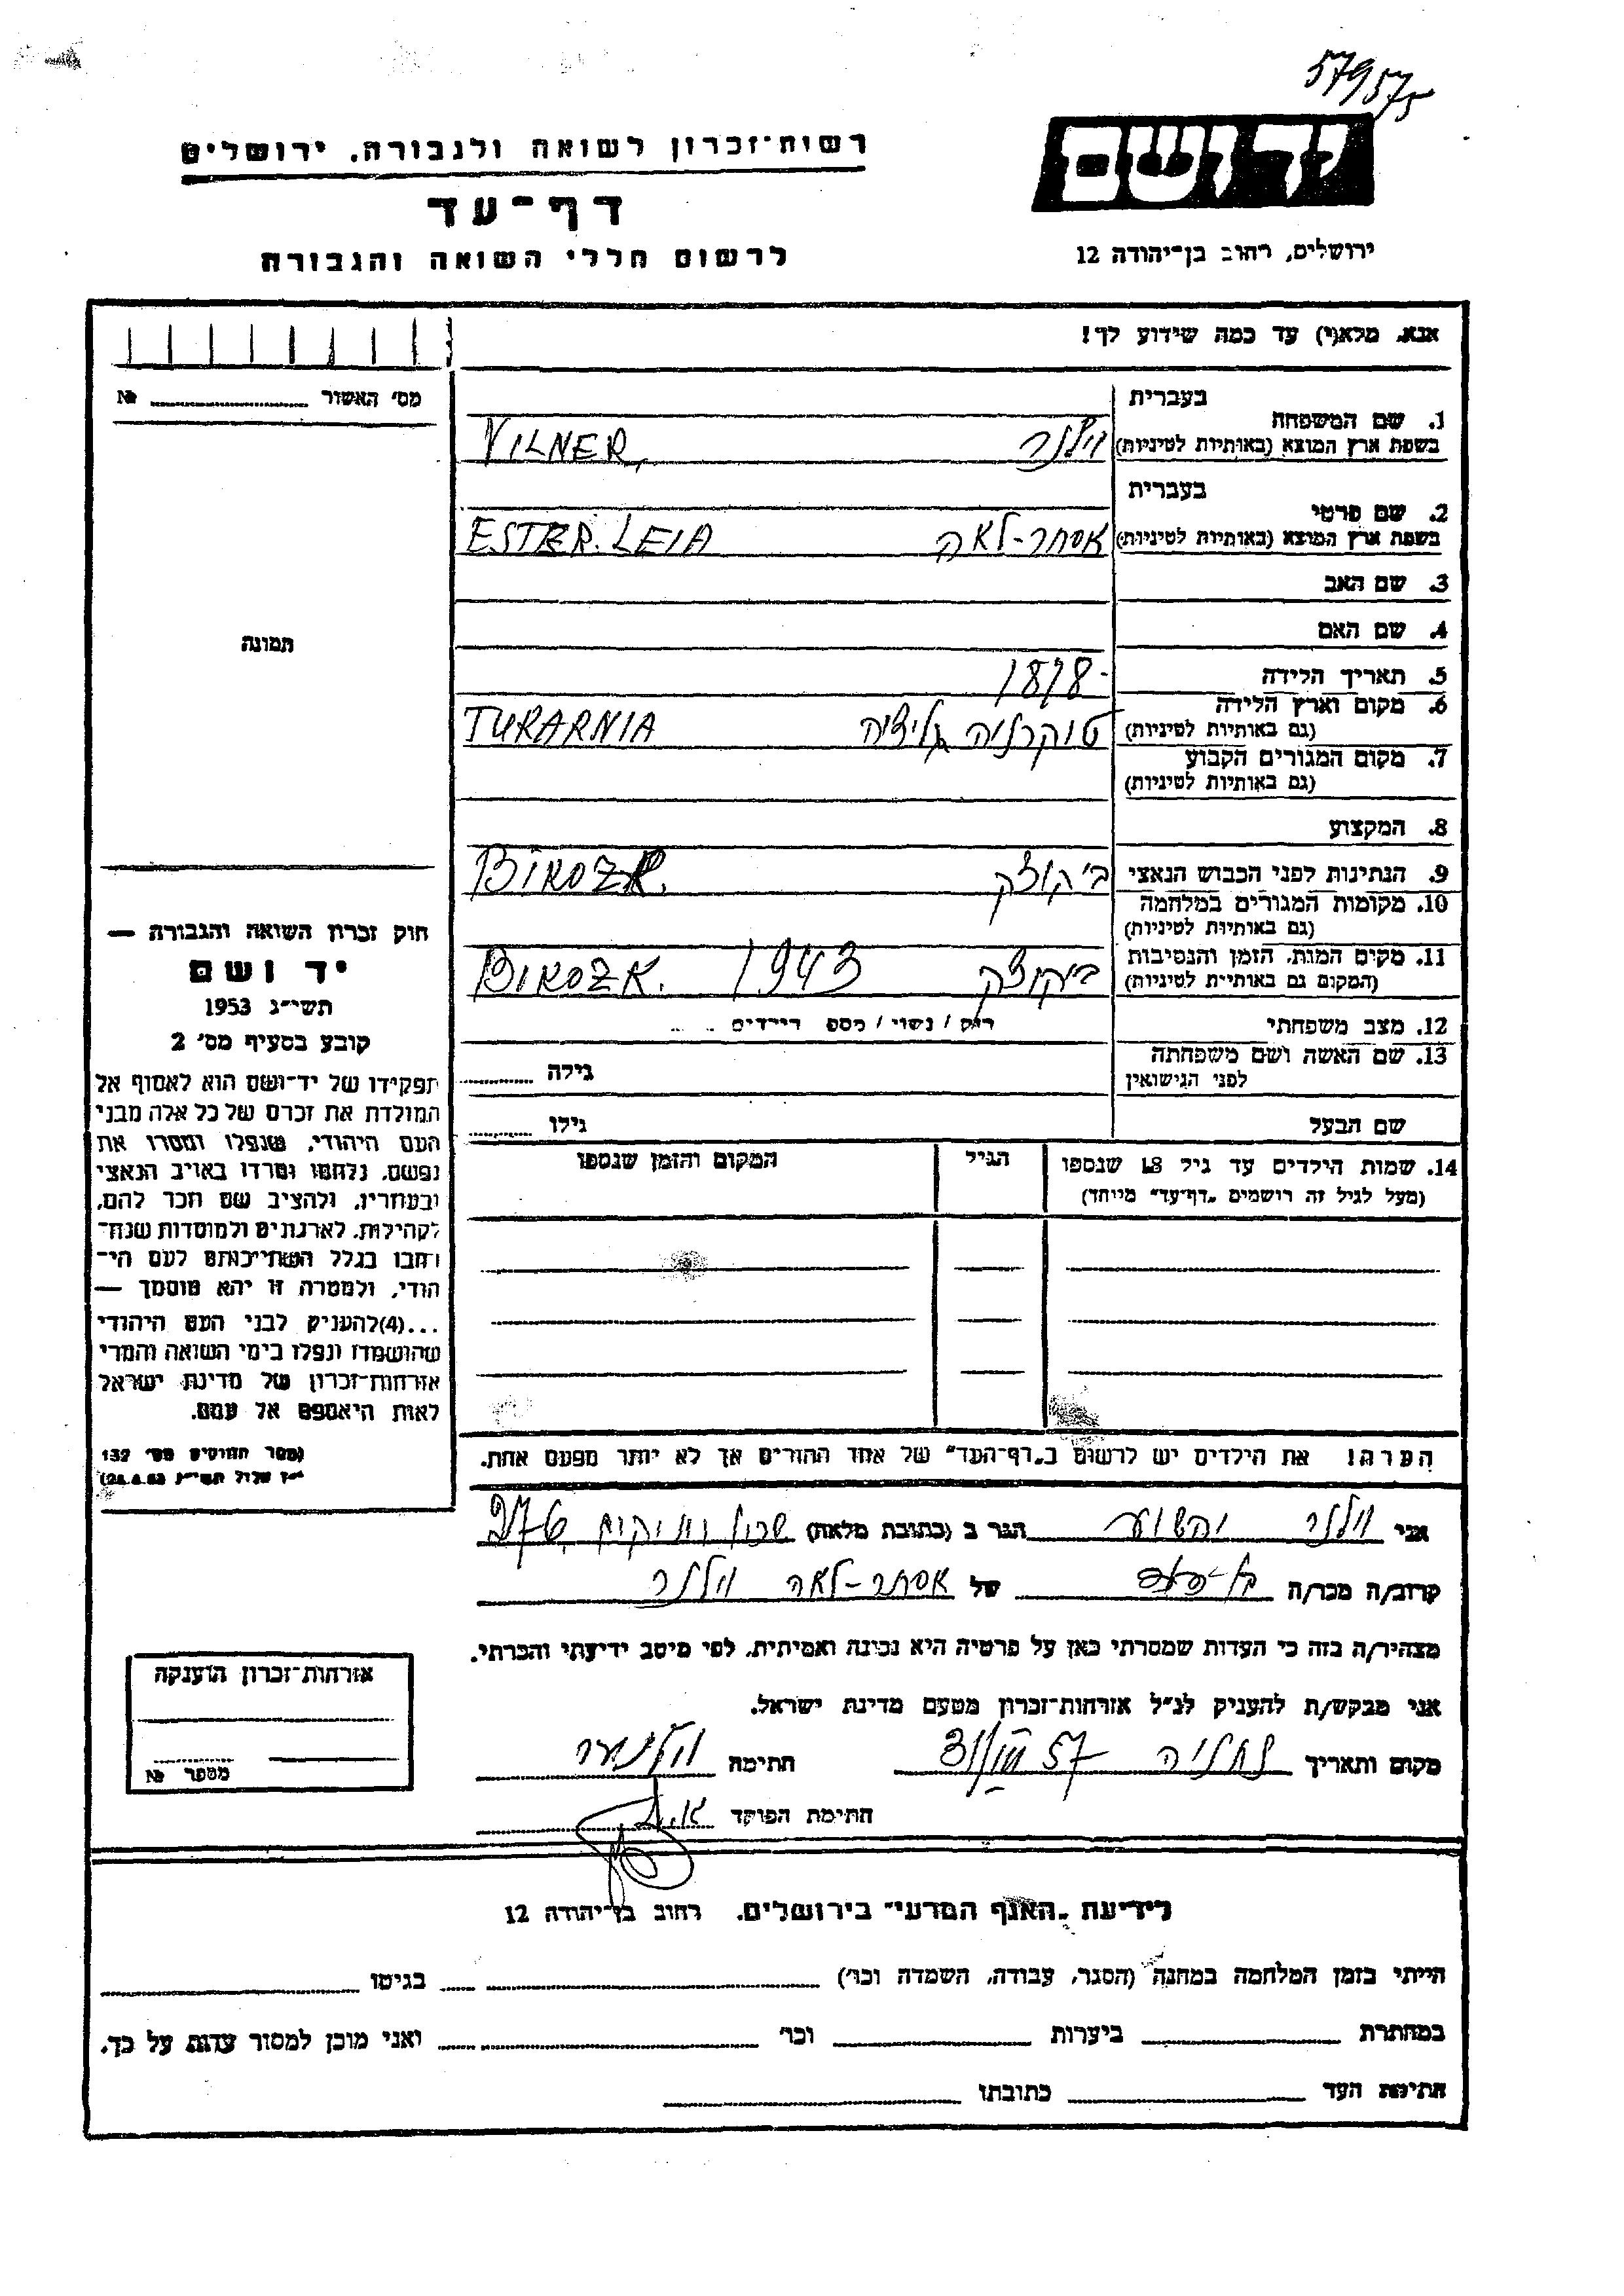 579575
יד ושם
רשות־זכרון לשואה ולגבורה. ירושלים
דף־עד
לרשום חללי השואה והגבורה
ירושלים, רחוב בן־יהודה 12
אנא, מלא(י) עד כמה שידוע לך!
מס' האשור № 
תמונה
בעברית
1. שם המשפחה
בשפת ארץ המוצא (באותיות לטיניות)
וילנר VILNER
בעברית
2. שם פרטי
בשפת ארץ המוצא (באותיות לטיניות)
אסתר-לאה ESTER. LEIA
3. שם האב
4. שם האם
5. תאריך הלידה 1878
6. מקום וארץ הלידה
(גם באותיות לטיניות)
טוקרניה גליציה TURARNIA
7. מקום המגורים הקבוע
(גם באותיות לטיניות)
8. המקצוע
9. הנתינות לפני הכבוש הנאצי
BIROZK.
10. מקומות המגורים במלחמה
(גם באותיות לטיניות)
11. מקים המות, הזמן והנסיבות
(המקום גם באותיות לטיניות)
1943 BIROZK.
12. מצב משפחתי רוק / נשוי / מספ הילדים
13. שם האשה ושם משפחתה
לפני הנישואין
גילה
שם הבעל גילו
14. שמות הילדים עד גיל 18 שנספו הגיל המקום והזמן שנספו
(מעל לגיל זה רושמים „דף־עד" מייחד)
הערה! את הילדים יש לרשום ב„דף־העד" של אחד ההורים אך לא יותר מפעם אחת.
חוק זכרון השואה והגבורה —
יד ושם
תשי״ג 1953
קובע בסעיף מס' 2
תפקידו של יד־ושם הוא לאסוף אל
המולדת את זכרם של כל אלה מבני
העם היהודי, שנפלו ומסרו את
נפשם, נלחמו ומרדו באויב הנאצי
ובעוזריו, ולהציב שם וזכר להם,
לקהילות, לארגונים ולמוסדות שנח־
רבו בגלל השתייכותם לעם הי־
הודי, ולמטרה זו יהא מוסמך —
...(4)להעניק לבני העם היהודי
שהושמדו ונפלו בימי השואה והמרי
אזרחות־זכרון של מדינת ישראל
לאות היאספם אל עמם.
(ספר החוקים מס' 132
אני וילנר יהושע הגר ב (כתובת מלאה) שכון ותיקים 276
קרוב/ה מכר/ה של אסתר-לאה וילנר
מצהיר/ה בזה כי העדות שמסרתי כאן על פרטיה היא נכונה ואמיתית, לפי מיטב ידיעתי והכרתי.
אני מבקש/ת להעניק לנ״ל אזרחות־זכרון מטעם מדינת ישראל.
מקום ותאריך נתניה 57 חתימה
חתימת הפוקד
אזרחות־זכרון הוענקה
מספר №
לידיעת „האגף המדעי" בירושלים. רחוב בן־יהודה 12
הייתי בזמן המלחמה במחנה (הסגר, עבודה, השמדה וכו') בגיטו
במחתרת ביערות וכו' ואני מוכן למסור עדות על כך.
חתימת העד כתובתו